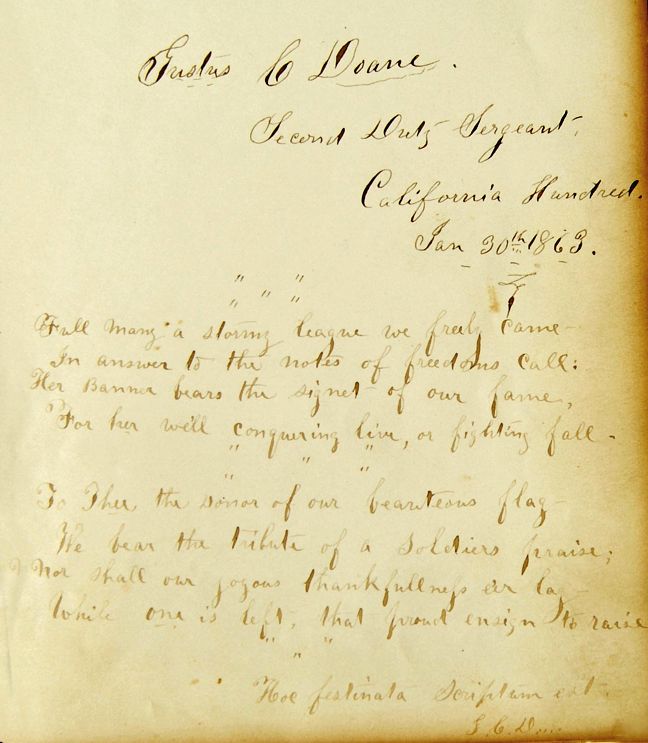 Gustus C Doane.
Second Duty Sergeant,
California Hundred.
Jan 30th 1863.
" " "
" " "
Full many a stormy league we freely came—
In answer to the notes of freedoms call:
Her Banner bears the signet of our fame,
For her we'll conquering live, or fighting fall.
" " "
"
To Thee, the donor of our beauteous flag—
We bear the tribute of a Soldiers praise;
Nor shall our joyous thankfullness e'er lag—
While one is left, that proud ensign to raise
" " "
"
Hoc festinata Scriptum est.
G. C. Doane